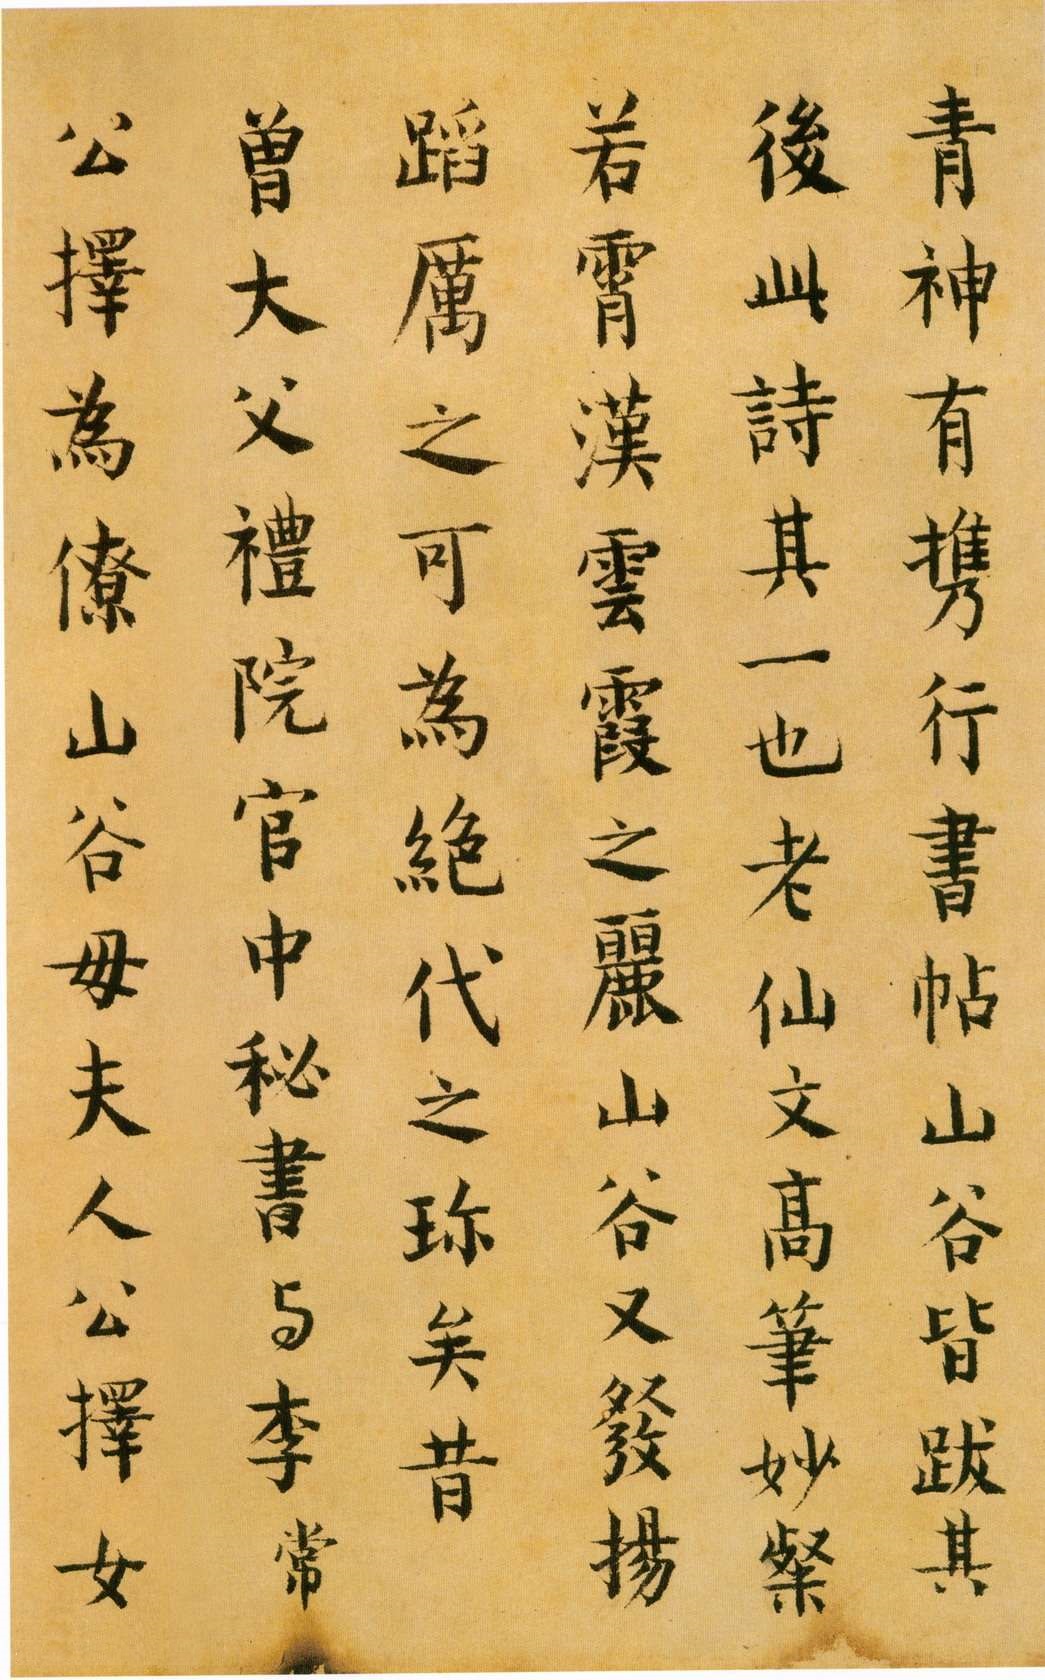 青神有攜行書帖山谷皆跋其
後此詩其一也老仙文高筆妙粲
若霄漢雲霞之麗山谷又發揚
蹈厲之可為絕代之珎矣昔
曾大父禮院官中秘書与李常
公擇為僚山谷母夫人公擇女